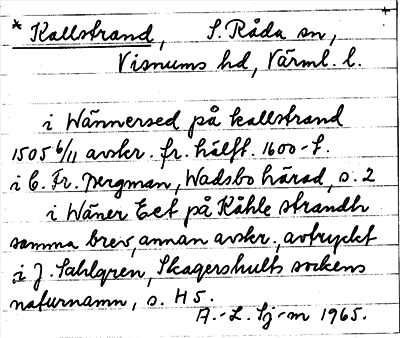 * Kallstrand, S. Råda sn,
Visnums hd, Värml. l.
i Wännersed på kallstrand
1505 6/11 avskr. fr. hälft. 1600-t.
i C. Fr. Bergman, Wadsbo härad, s. 2
i Wäner Eet på Kåhle strandh
samma brev, annan avskr., avtryckt
i J. Sahlgren, Skagershults sockens
naturnamn, s. H 5.
A.-L. Sj-m 1965.